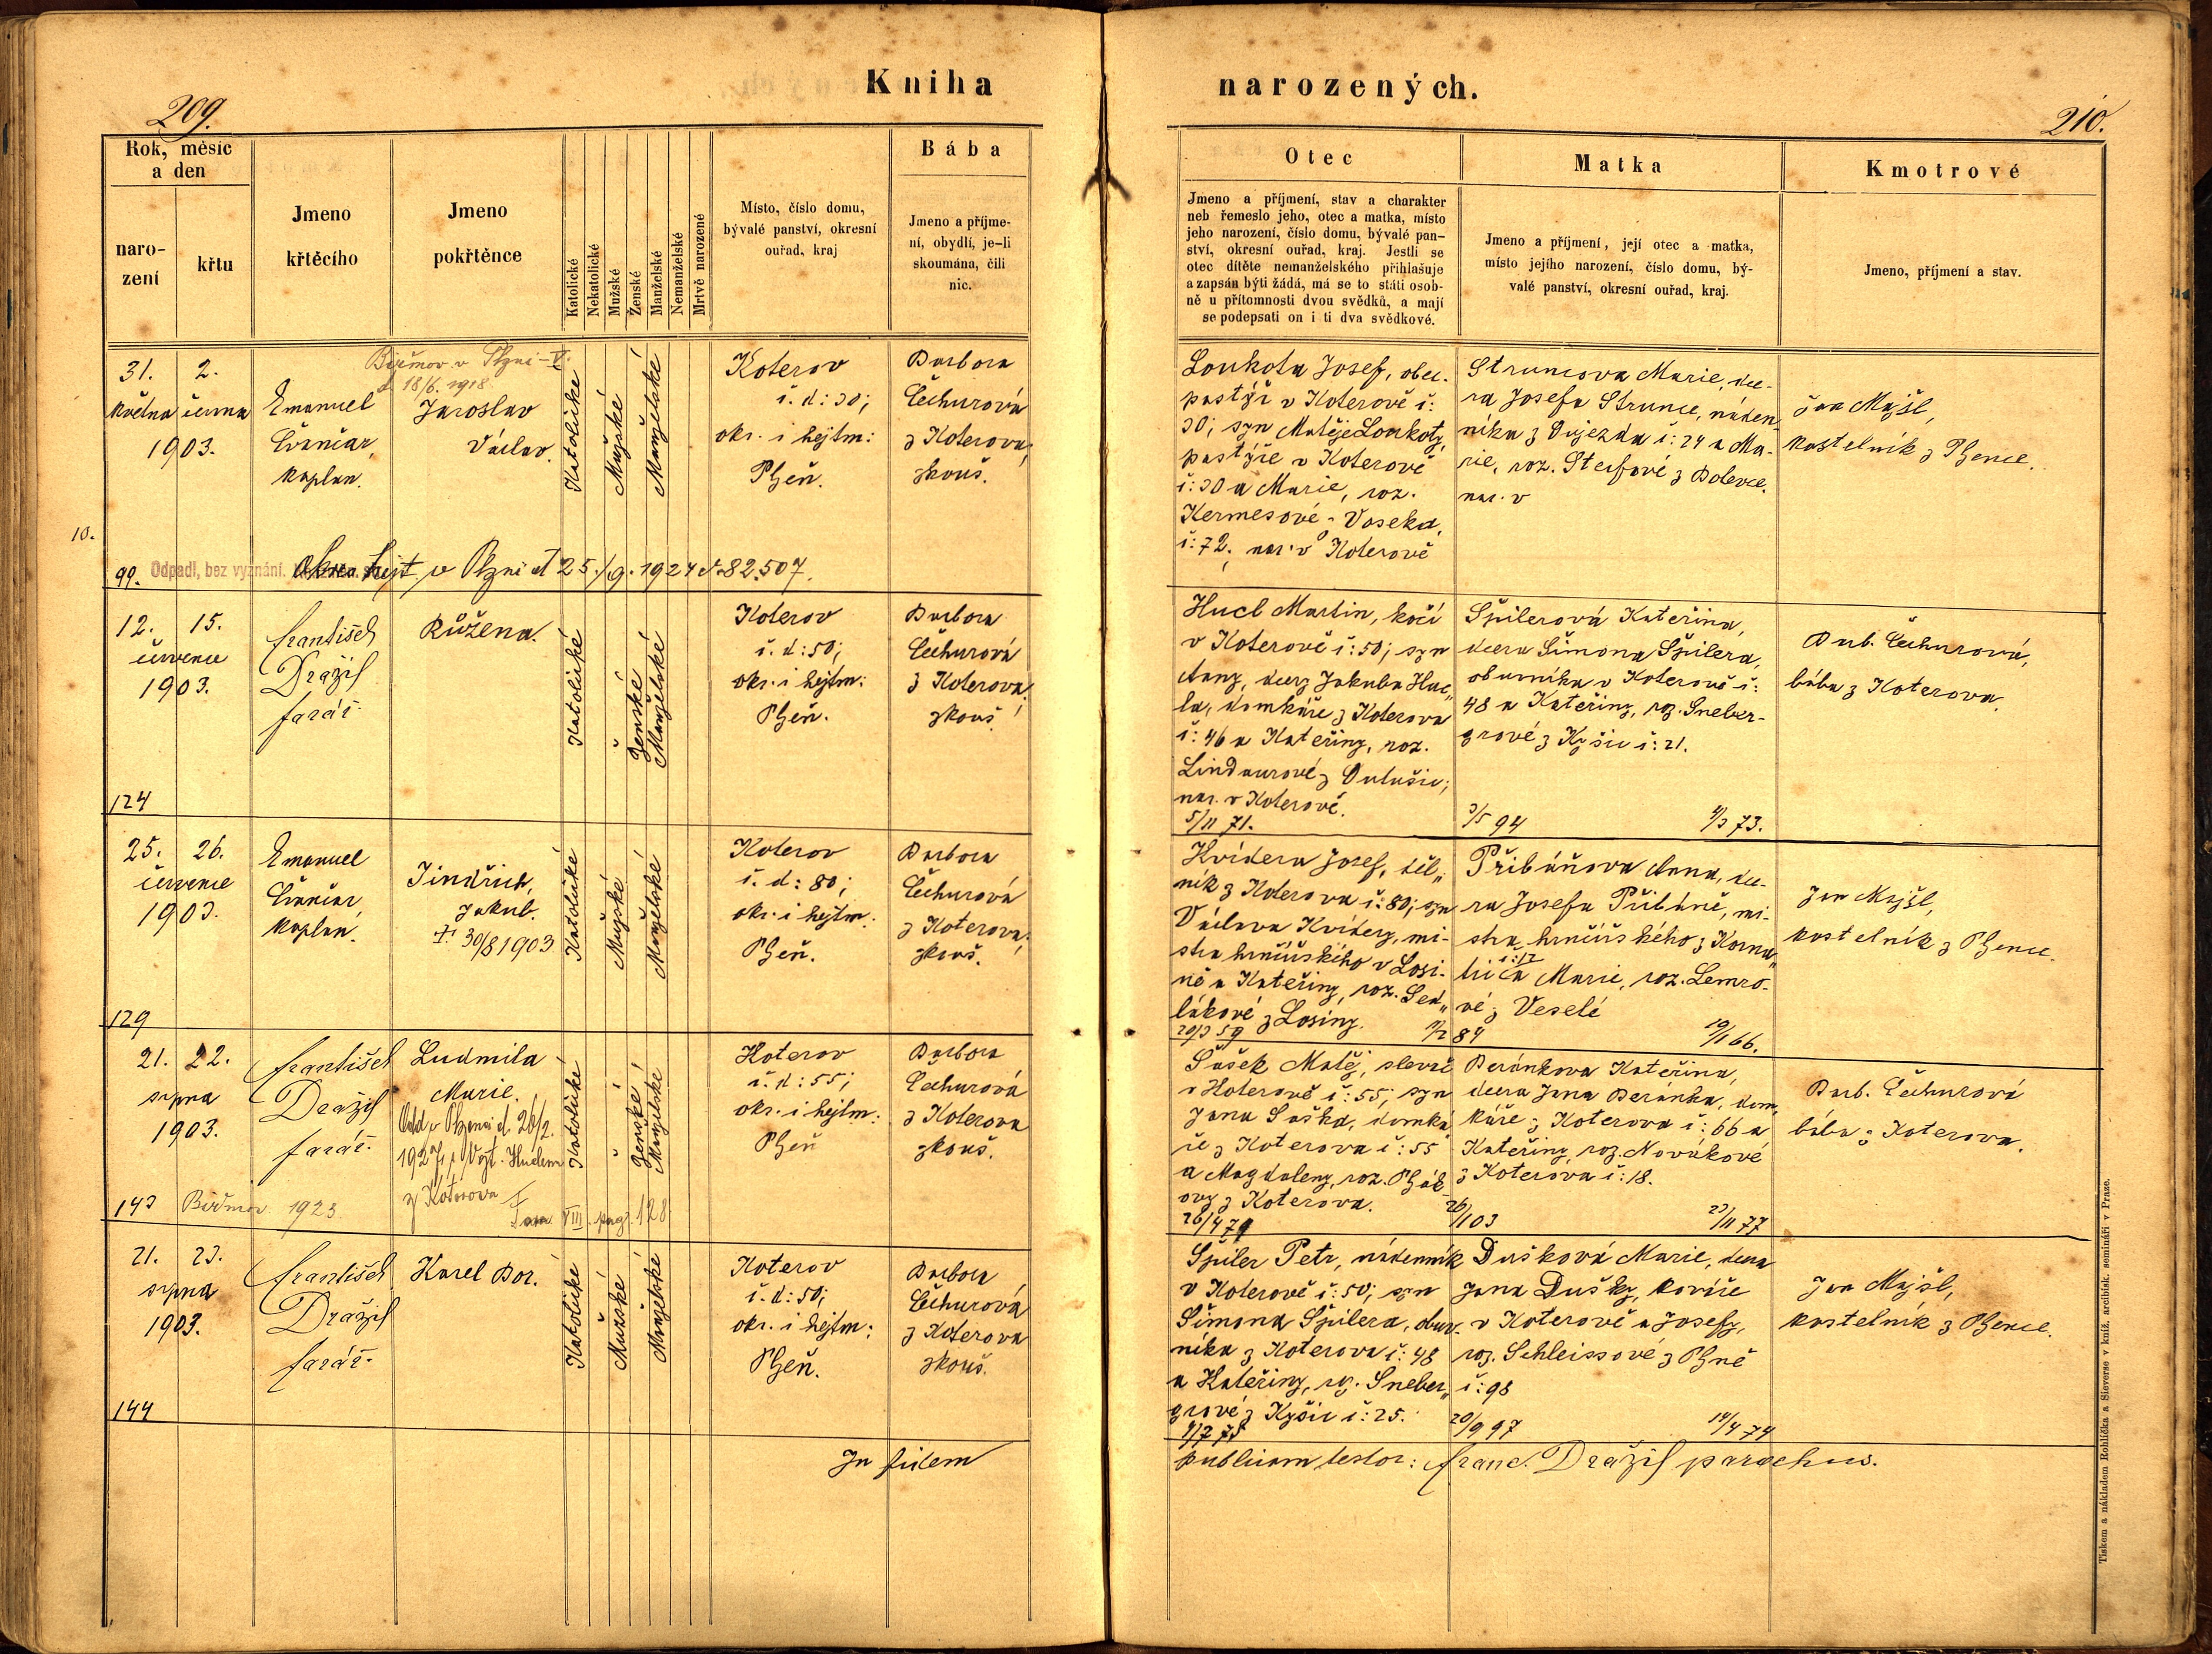 Kniha narozených.
209.
210.
Rok, měsíc
a den
naro-
zení
křtu
Jmeno
křtěcího
Jmeno
pokřtěnce
Katolické
Nekatolické
Mužské
Ženské
Manželské
Nemanželské
Mrtvě narozené
Místo, číslo domu,
bývalé panství, okresní
ouřad, kraj
Bába
Jmeno a příjme-
ní, obydlí, je-li
skoumána, čili
nic.
Otec
Jmeno a příjmení, stav a charakter
neb řemeslo jeho, otec a matka, místo
jeho narození, číslo domu, bývalé pan-
ství, okresní ouřad, kraj. Jestli se
otec dítěte nemanželského přihlašuje
a zapsán býti žádá, má se to státi osob-
ně u přítomnosti dvou svědků, a mají
se podepsati on i ti dva svědkové.
Matka
Jmeno a příjmení, její otec a matka,
místo jejího narození, číslo domu, bý-
valé panství, okresní ouřad, kraj.
Kmotrové
Jmeno, příjmení a stav.
31. 2.
května června
1903.
Emanuel
kaplan.
Biřmov. v Plzni
d 18/6. 1918
Jaroslav
Václav.
Katolické
Mužské
Manželské
Koterov
č. d: 30;
okr. i hejtm:
Plzeň.
Barbora
Čechurová
z Koterova;
zkouš.
Loukota Josef, obec.
pastýř v Koterově č:
30; syn Matěje Loukoty,
pastýře v Koterově
č: 30 a Marie, roz.
Kermesové z Voseka,
č: 72. nar. v Koterově
Struncova Marie, dce-
ra Josefa Strunce, náden-
níka z Újezda č: 24 a Ma-
rie, roz. Steifové z Bolevce.
nar. v
Jan Majšl,
kostelník z Plzence.
10.
99. Odpadl, bez vyznání. hejt v Plzni d 25./9. 1924 č. 82.507.
12. 15.
července
1903.
František
Dražil
farář.
Růžena.
Katolické
Ženské
Manželské
Koterov
č. d: 50;
okr. i hejtm:
Plzeň.
Barbora
Čechurová
z Koterova;
zkouš
Hucl Martin, kočí
v Koterově č: 50; syn
Anny, dcery Jakuba Huc„
la, domkáře z Koterova
č: 46 a Kateřiny, roz.
Lindaurové z
nar. v Koterově.
5/11 71.
Špilerová Kateřina,
dcera Šimona Špilera,
obuvníka v Koterově č:
48 a Kateřiny, roz. Sneber-
grové z Kyšic č: 21.
3/5 94
4/3 73.
Barb. Čechurová,
bába z Koterova.
124
25. 26.
července
1903.
Emanuel
kaplan.
Jindřich,
Jakub.
†. 30/8 1903
Katolické
Mužské
Manželské
Koterov
č. d: 80;
okr. i hejtm:
Plzeň.
Barbora
Čechurová
z Koterova;
zkouš.
Kvídera Josef, děl„
ník z Koterova č: 80; syn
Václava Kvídery, mi-
stra hrnčířského v Losi-
né a Kateřiny, roz. Sed„
lákové z Losiny.
20/3 59
11/2 84
Přibáňova Anna, dce-
ra Josefa Přibáně, mi-
stra hrnčířského z Korna„
tic č: 17 a Marie, roz. Lemro-
vé z Veselé
19/11 66.
Jan Majšl,
kostelník z Plzence.
129
21. 22.
srpna
1903.
František
Dražil
farář.
Ludmila
Marie.
Odd. v Plzenci d. 26/2.
1927, s Vojt. Huclem
z Koterova
Fara VIII. pag. 128
Katolické
Ženské
Manželské
Koterov
č. d: 55;
okr. i hejtm:
Plzeň
Barbora
Čechurová
z Koterova
zkouš.
Šašek Matěj, slevač
v Koterově č: 55; syn
Jana Šaška, domká
ře z Koterova č: 55
a Magdaleny, roz.
ovy z Koterova.
26/4 79
Beránkova Kateřina,
dcera Jana Beránka, dom„
káře z Koterova č: 66 a
Kateřiny, roz. Novákové
z Koterova č: 18.
26/1 03
23/11 77
Barb. Čechurová
bába z Koterova.
143 Biřmov 1923
21. 23.
srpna
1903.
František
Dražil
farář.
Karel Bor.
Katolické
Mužské
Manželské
Koterov
č. d: 50;
okr. i hejtm:
Plzeň.
Barbora
Čechurová
z Koterova
zkouš.
Špiler Petr, nádenník
v Koterově č: 50; syn
Šimona Špilera, obuv-
níka z Koterova č: 48
a Kateřiny, roz. Sneber„
grové z Kyšic č: 25.
Dušková Marie, dcera
Jana Dušky, kováře
v Koterově a Josefy,
roz. Schleissové z Plzně
č: 98
20/9 97
14/4 74
Jan Majšl,
kostelník z Plzence.
144
In fidem
publicam testor: Franc. Dražil parochus.
Tiskem a nákladem Rohlíčka a Sieverse v kníž. arcibisk. semináři v Praze.